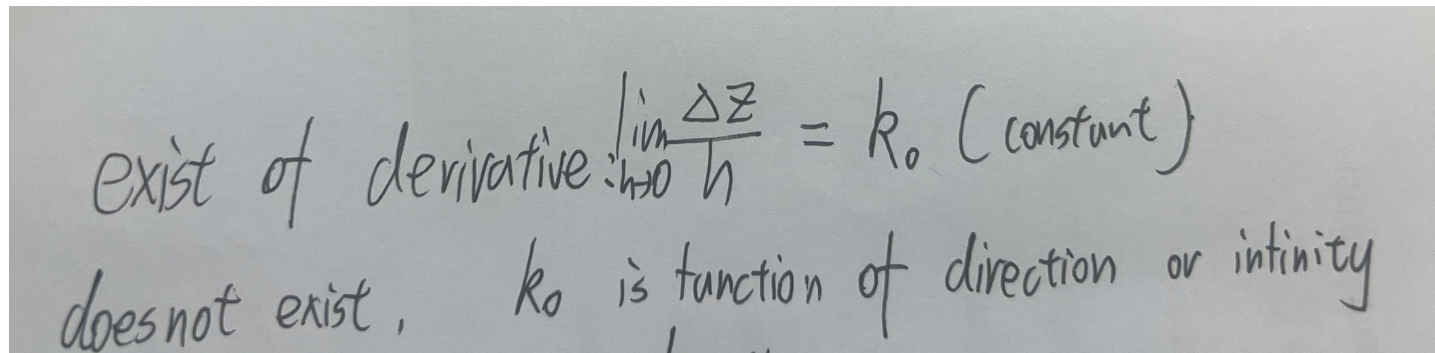 exist of derivative: lim h→0 Δz/h = k₀ (constant)
does not exist, k₀ is function of direction or infinity